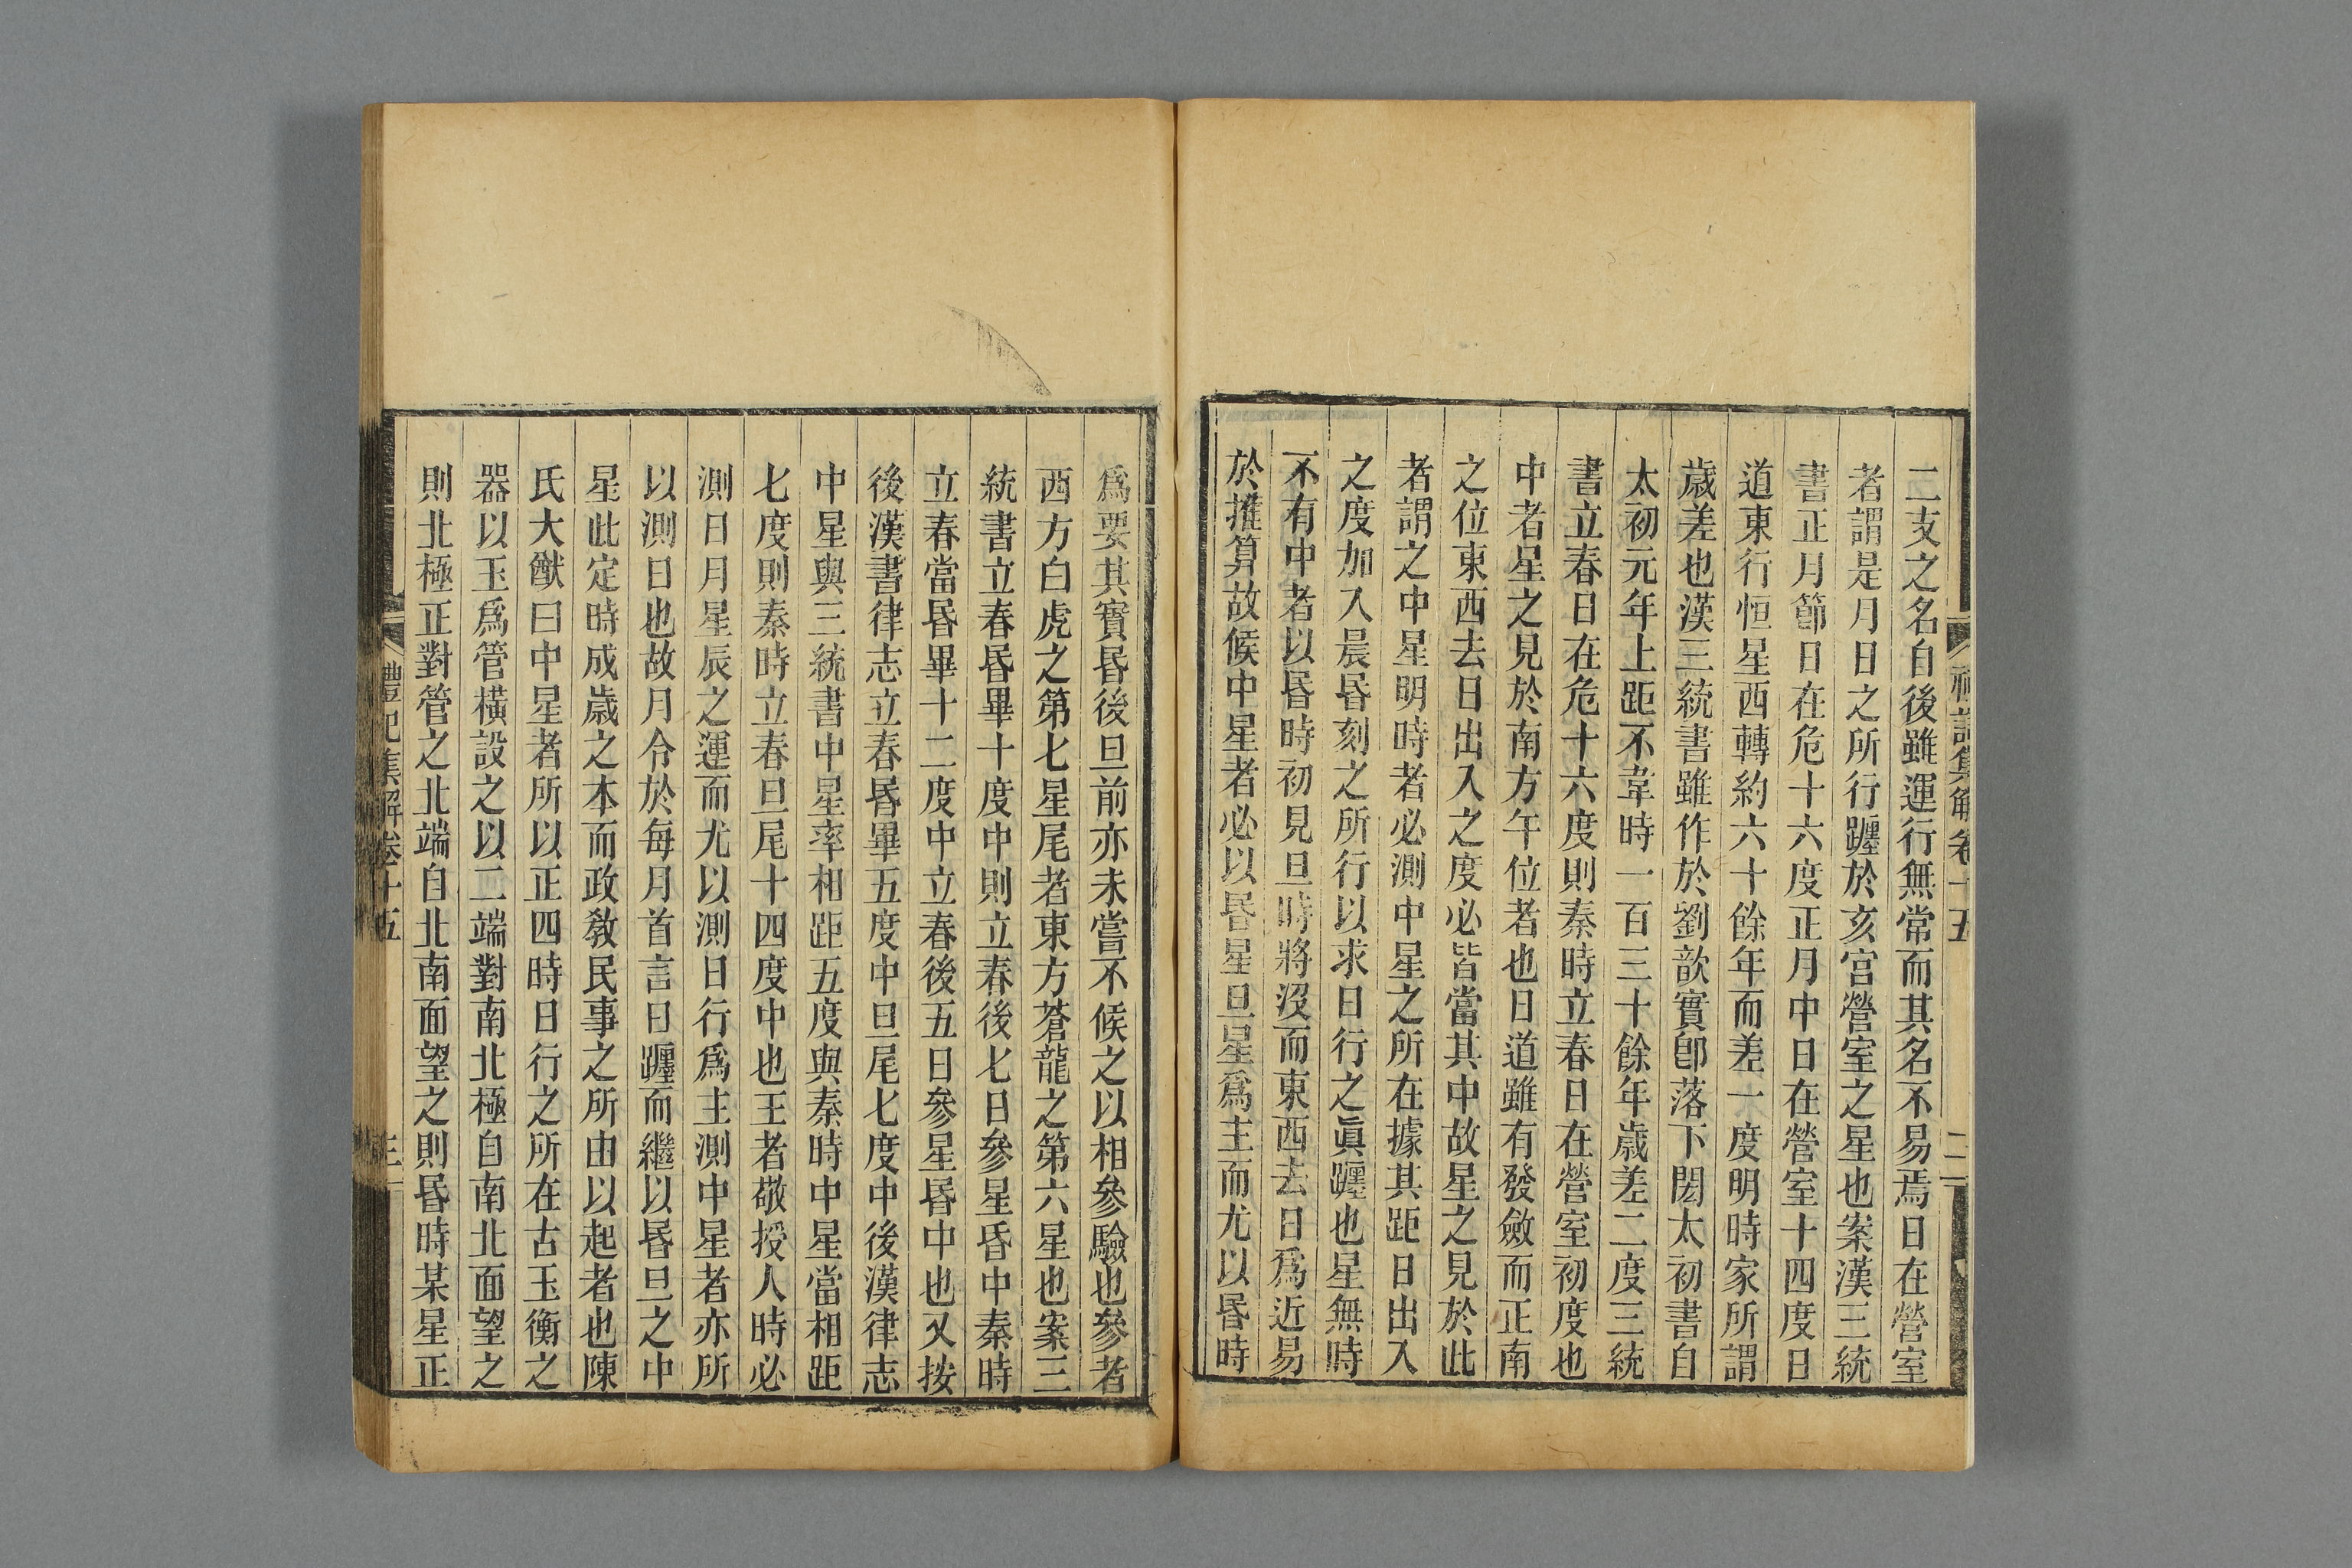 二支之名自後雖運行無常而其名不易焉日在營室
者謂是月日之所行躔於亥宮營室之星也案漢三統
書正月節日在危十六度正月中日在營室十四度日
道東行恒星西轉約六十餘年而差一度明時家所謂
歲差也漢三統書雖作於劉歆實卽落下閎太初書自
太初元年上距不韋時一百三十餘年歲差二度三統
書立春日在危十六度則秦時立春日在營室初度也
中者星之見於南方午位者也日道雖有發斂而正南
之位東西去日出入之度必皆當其中故星之見於此
者謂之中星明時者必測中星之所在據其距日出入
之度加入晨昬刻之所行以求日行之眞躔也星無時
不有中者以昬時初見旦時將沒而東西去日爲近易
於推算故候中星者必以昬星旦星爲主而尤以昬時
爲要其實昬後旦前亦未嘗不候之以相參驗也參者
西方白虎之第七星尾者東方蒼龍之第六星也案三
統書立春昬畢十度中則立春後七日參星昏中秦時
立春當昬畢十二度中立春後五日參星昬中也又按
後漢書律志立春昬畢五度中旦尾七度中後漢律志
中星與三統書中星率相距五度與秦時中星當相距
七度則秦時立春旦尾十四度中也王者敬授人時必
測日月星辰之運而尤以測日行爲主測中星者亦所
以測日也故月令於每月首言日躔而繼以昬旦之中
星此定時成歲之本而政敎民事之所由以起者也陳
氏大猷曰中星者所以正四時日行之所在古玉衡之
器以玉爲管橫設之以二端對南北極自南北面望之
則北極正對管之北端自北南面望之則昬時某星正
禮記集解卷十五